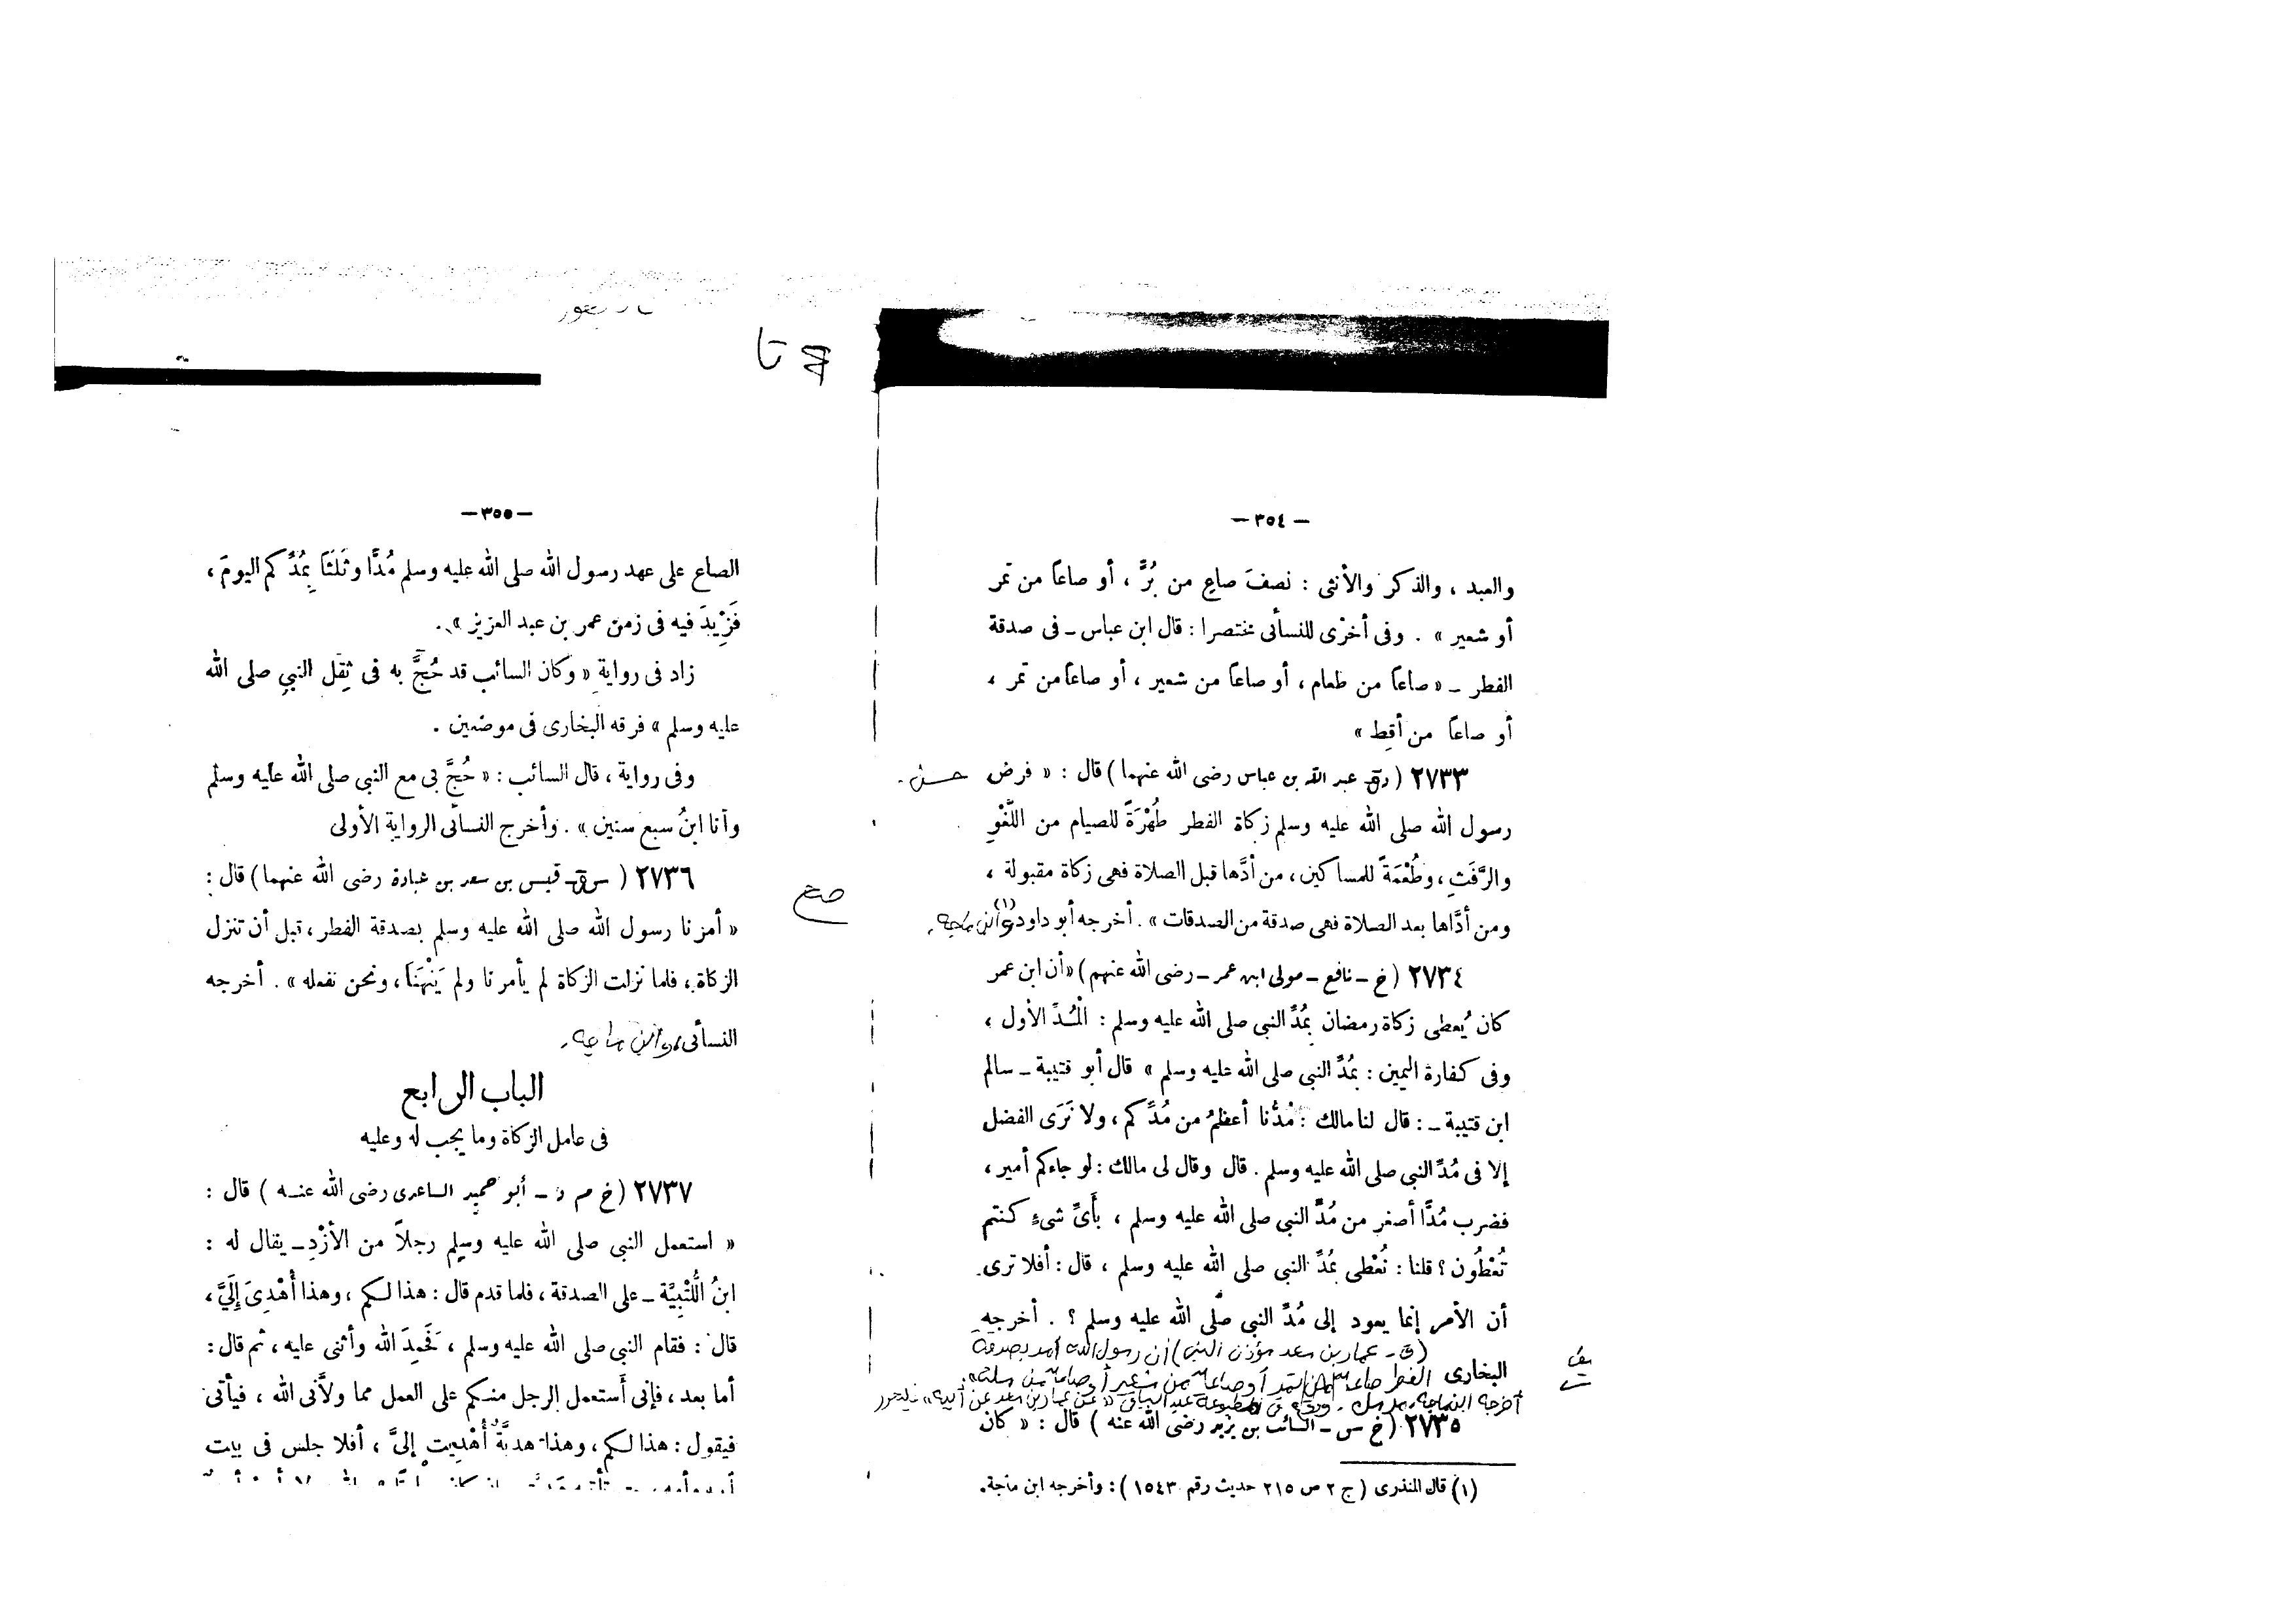 — ٣٥٤ —
والعبد ، والذكر والأنثى : نصفَ صاعٍ من بُرٍّ ، أو صاعًا من تمر
أو شعير » . وفى أخرى للنسأئى مختصرا : قال ابن عباس ـ فى صدقة
الفطر ـ « صاعًا من طعام ، أو صاعًا من شعير ، أو صاعًا من تمر ،
أو صاعًا من أقِط »
٢٧٣٣ ( دق ـ عبد الله بن عباس رضى الله عنهما ) قال : « فرض حسن .
رسول الله صلى الله عليه وسلم زكاة الفطر طُهْرَةً للصيام من اللَّغْوِ
والرَّفَثِ ، وطُعْمَةً للمساكين ، من أدَّها قبل الصلاة فهى زكاة مقبولة ،
ومن أدَّاها بعد الصلاة فهى صدقة من الصدقات » . أخرجه أبو داود (١) وابن ماجه .
٢٧٣٤ ( خ ـ نافع ـ مولى ابن عمر ـ رضى الله عنهم ) « أن ابن عمر
كان يُعطى زكاة رمضان بِمُدِّ النبى صلى الله عليه وسلم : الْمُدِّ الأول ،
وفى كفارة اليمين : بمُدِّ النبى صلى الله عليه وسلم » قال أبو قتيبة ـ سالم
ابن قتيبة ـ : قال لنا مالك : مُدُّنا أعظمُ من مُدِّكم ، ولا نَرَى الفضل
إلا فى مُدِّ النبى صلى الله عليه وسلم . قال وقال لى مالك : لو جاءكم أمير ،
فضرب مُدًّا أصغر من مُدِّ النبى صلى الله عليه وسلم ، بأَىِّ شىءٍ كنتم
تُعْطُون ؟ قلنا : نُعْطى بمُدِّ النبى صلى الله عليه وسلم ، قال : أفلا ترى
أن الأمر إنما يعود إلى مُدِّ النبى صلَّى الله عليه وسلم ؟ . أخرجه
( ق ـ عمار بن سعد مؤذن النبى ) أن رسول الله أمر بصدقة
البخارى الفطر صاعا من تمر أو صاعا من شعير أو صاعا من سلت » .
أخرجه ابن ماجه عبد الباقى « عن عمار بن سعد عن أبيه »
٢٧٣٥ ( خ س ـ السائب بن يزيد رضى الله عنه ) قال : « كان
(١) قال المنذرى ( ج ٢ ص ٢١٥ حديث رقم ١٥٤٣ ) : وأخرجه ابن ماجة .
— ٣٥٥ —
الصاع على عهد رسول الله صلى الله عليه وسلم مُدًّا وثَلثًا بِمُدِّكم اليومَ ،
فَزِيدَ فيه فى زمن عمر بن عبد العزيز » .
زاد فى رواية « وكان السائب قد حُجَّ به فى ثِقَل النبى صلى الله
عليه وسلم » فرقه البخارى فى موضعين .
وفى رواية ، قال السائب : « حُجَّ بى مع النبى صلى الله عليه وسلم
وأنا ابنُ سبع سنين » . وأخرج النسأئى الرواية الأولى
٢٧٣٦ ( س ق ـ قيس بن سعد بن عبادة رضى الله عنهما ) قال : صح
« أمرنا رسول الله صلى الله عليه وسلم بصدقة الفطر ، قبل أن تنزل
الزكاة ، فلما نزلت الزكاة لم يأمرنا ولم يَنْهَنَا ، ونحن نفعله » . أخرجه
النسأئى وابن ماجه .
الباب الرابع
فى عامل الزكاة وما يجب له وعليه
٢٧٣٧ ( خ م د ـ أبو حميد الساعدى رضى الله عنه ) قال :
« استعمل النبى صلى الله عليه وسلم رجلاً من الأزْدِ ـ يقال له :
ابنُ اللُّتْبِيَّة ـ على الصدقة ، فلما قدم قال : هذا لكم ، وهذا أُهْدِىَ إِلَىَّ ،
قال : فقام النبى صلى الله عليه وسلم ، فَحَمِدَ الله وأثنى عليه ، ثم قال :
أما بعد ، فإنى أَستعمل الرجل منكم على العمل مما ولاَّنى الله ، فيأتى
فيقول : هذا لكم ، وهذا هديَّةٌ أُهْدِيت إلىَّ ، أفلا جلس فى بيت